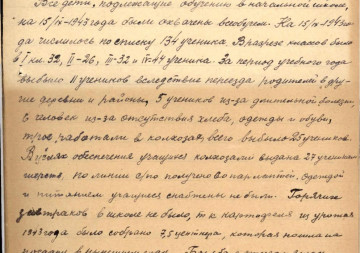 Все дети, подлежащие обучению в начальной школе,
на 15/IX-1943 года были охвачены всеобучем. На 15/IX-1943 го-
да числилось по списку 134 ученика. В разрезе классов было
в I кл. 32, II-26, III-32 и IV-44 ученика. За период учебного года
выбыло 11 учеников вследствие переезда родителей в дру-
гие деревни и районы, 5 учеников из-за длительной болезни,
6 человек из-за отсутствия хлеба, одежды и обуви,
трое работали в колхозах, всего выбыло 25 учеников.
В целях обеспечения учащихся колхозами выдана 27 ученикам
шерсть, по линии с/по получено 8 пар лаптей. Одеждой
и питанием учащиеся снабжены не были. Горячих
завтраков в школе не было, т.к. картофеля из урожая
1943 года было собрано 7,5 центнера, которая пошла на
посадку в нынешнем году.